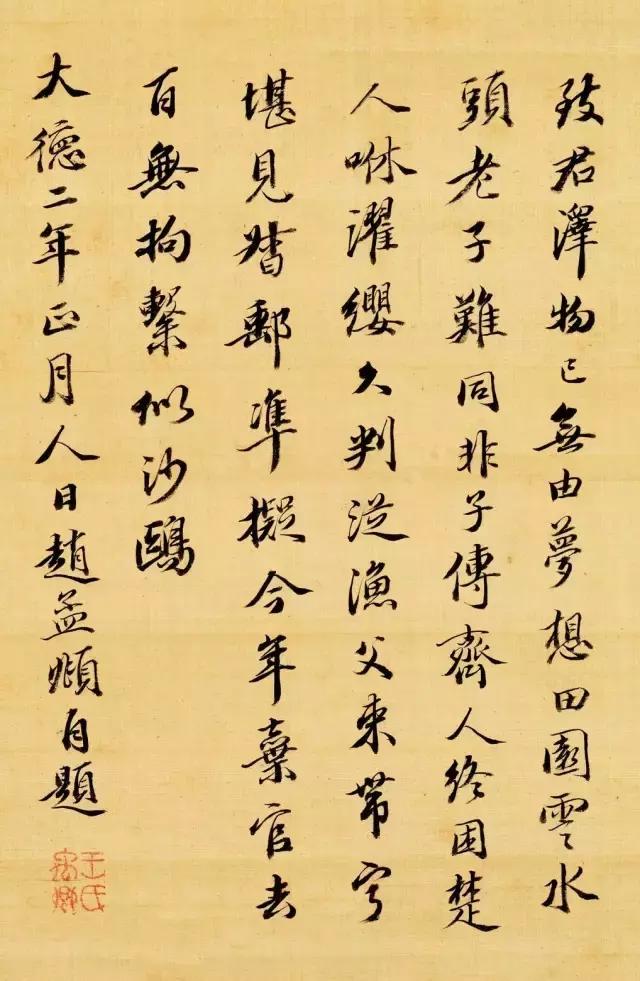 致君澤物已無由夢想田園雲水
頭老子難同非子傳齊人終困楚
人咻濯纓久判從漁父束帶寧
堪見督郵準擬今年棄官去
百無拘繫似沙鷗
大德二年正月人日趙孟頫自題
王氏